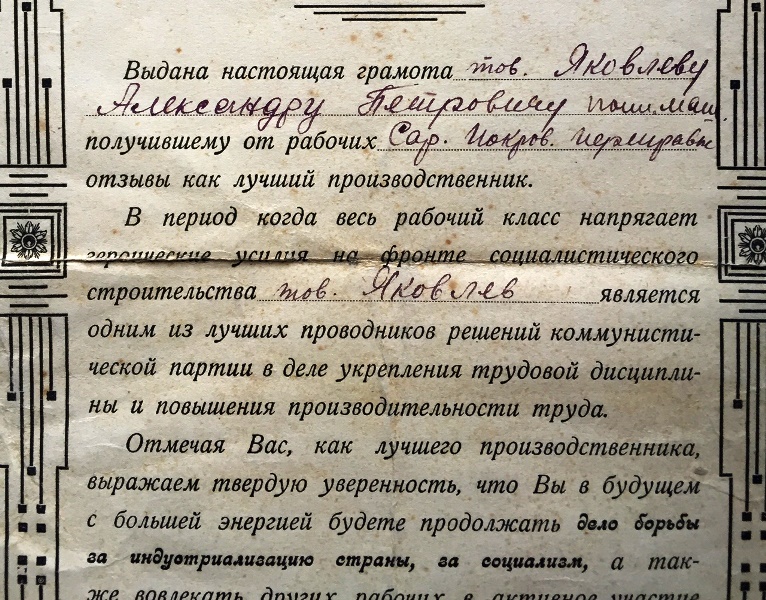 Выдана настоящая грамота тов. Яковлеву
Александру Петровичу
получившему от рабочих Сар. Покров.
отзывы как лучший производственник.
В период когда весь рабочий класс напрягает
героические усилия на фронте социалистического
строительства тов. Яковлев является
одним из лучших проводников решений коммунисти-
ческой партии в деле укрепления трудовой дисципли-
ны и повышения производительности труда.
Отмечая Вас, как лучшего производственника,
выражаем твердую уверенность, что Вы в будущем
с большей энергией будете продолжать дело борьбы
за индустриализацию страны, за социализм, а так-
же вовлекать других рабочих в активное участие